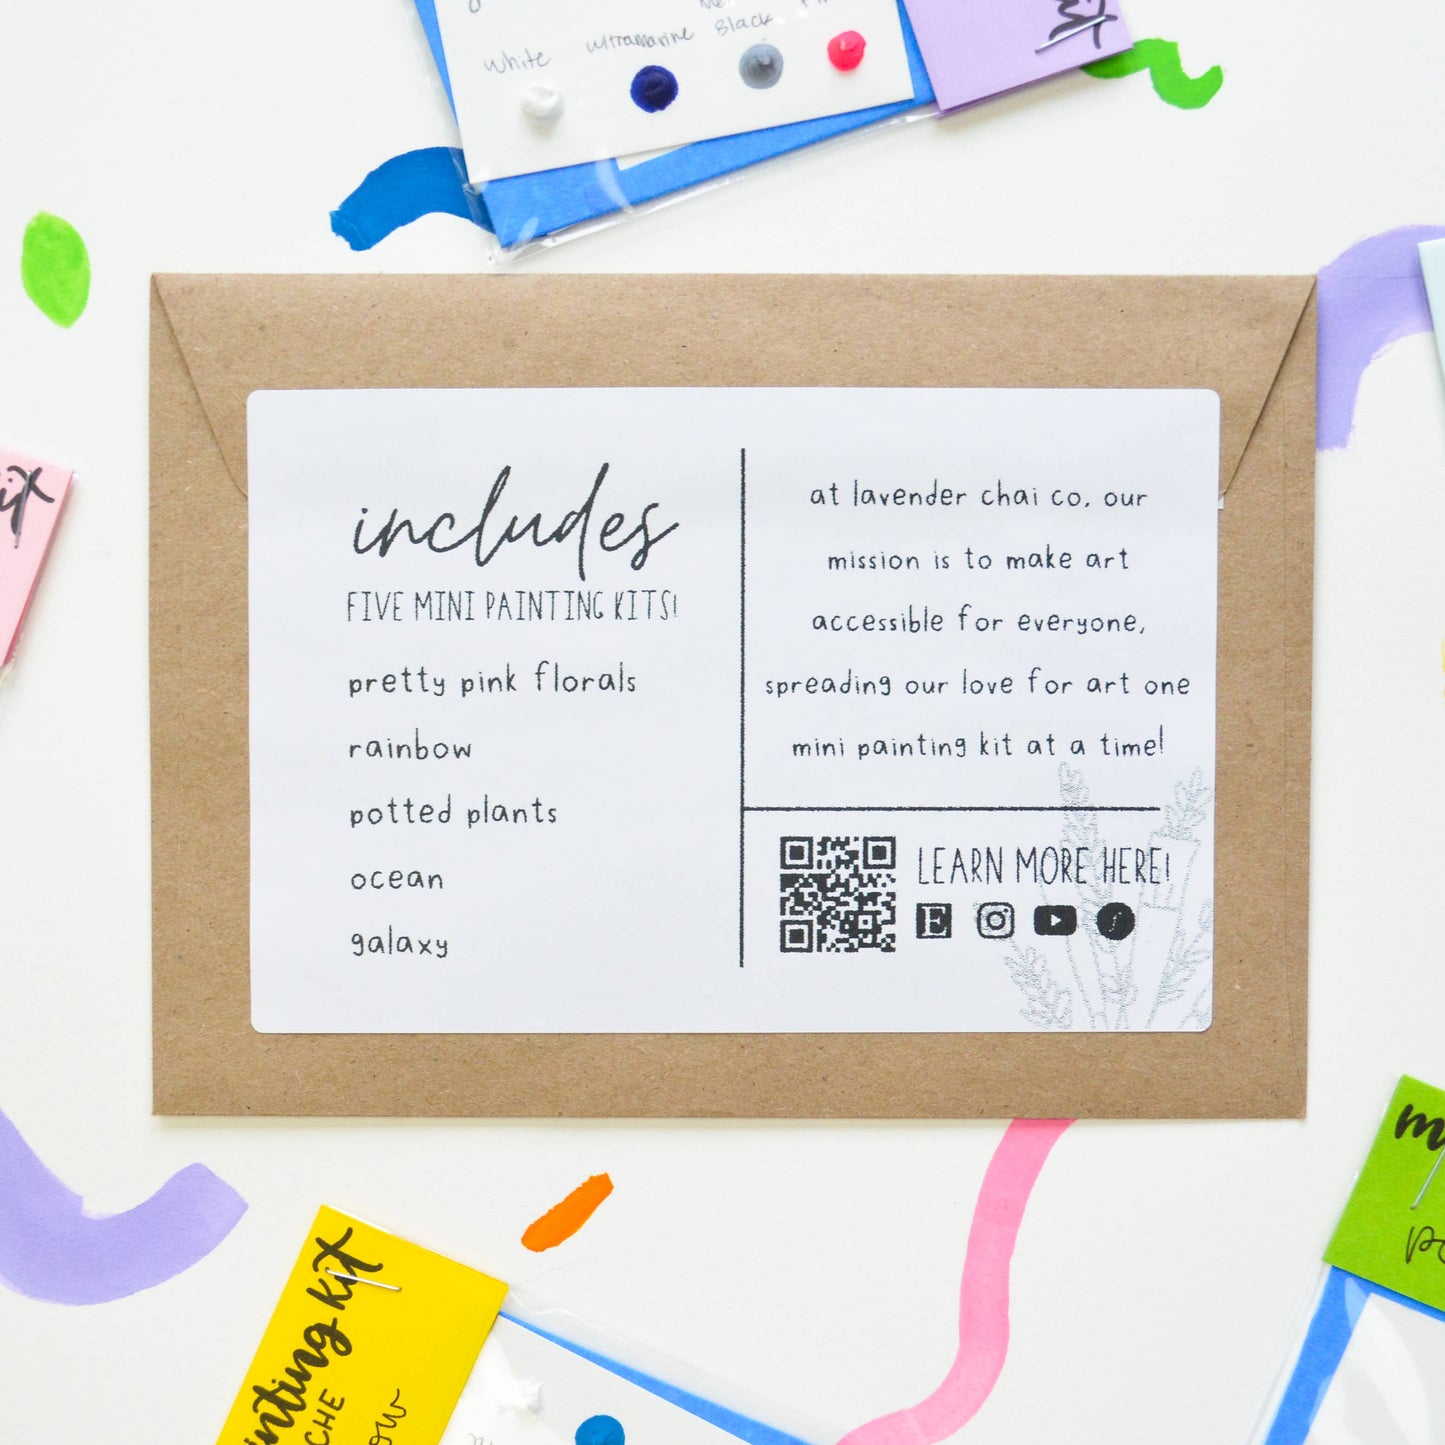 White
ultramarine
Black
kit
kit
includes
FIVE MINI PAINTING KITS!
pretty pink florals
rainbow
potted plants
ocean
galaxy
at lavender chai co, our
mission is to make art
accessible for everyone,
spreading our love for art one
mini painting kit at a time!
LEARN MORE HERE!
E
kit